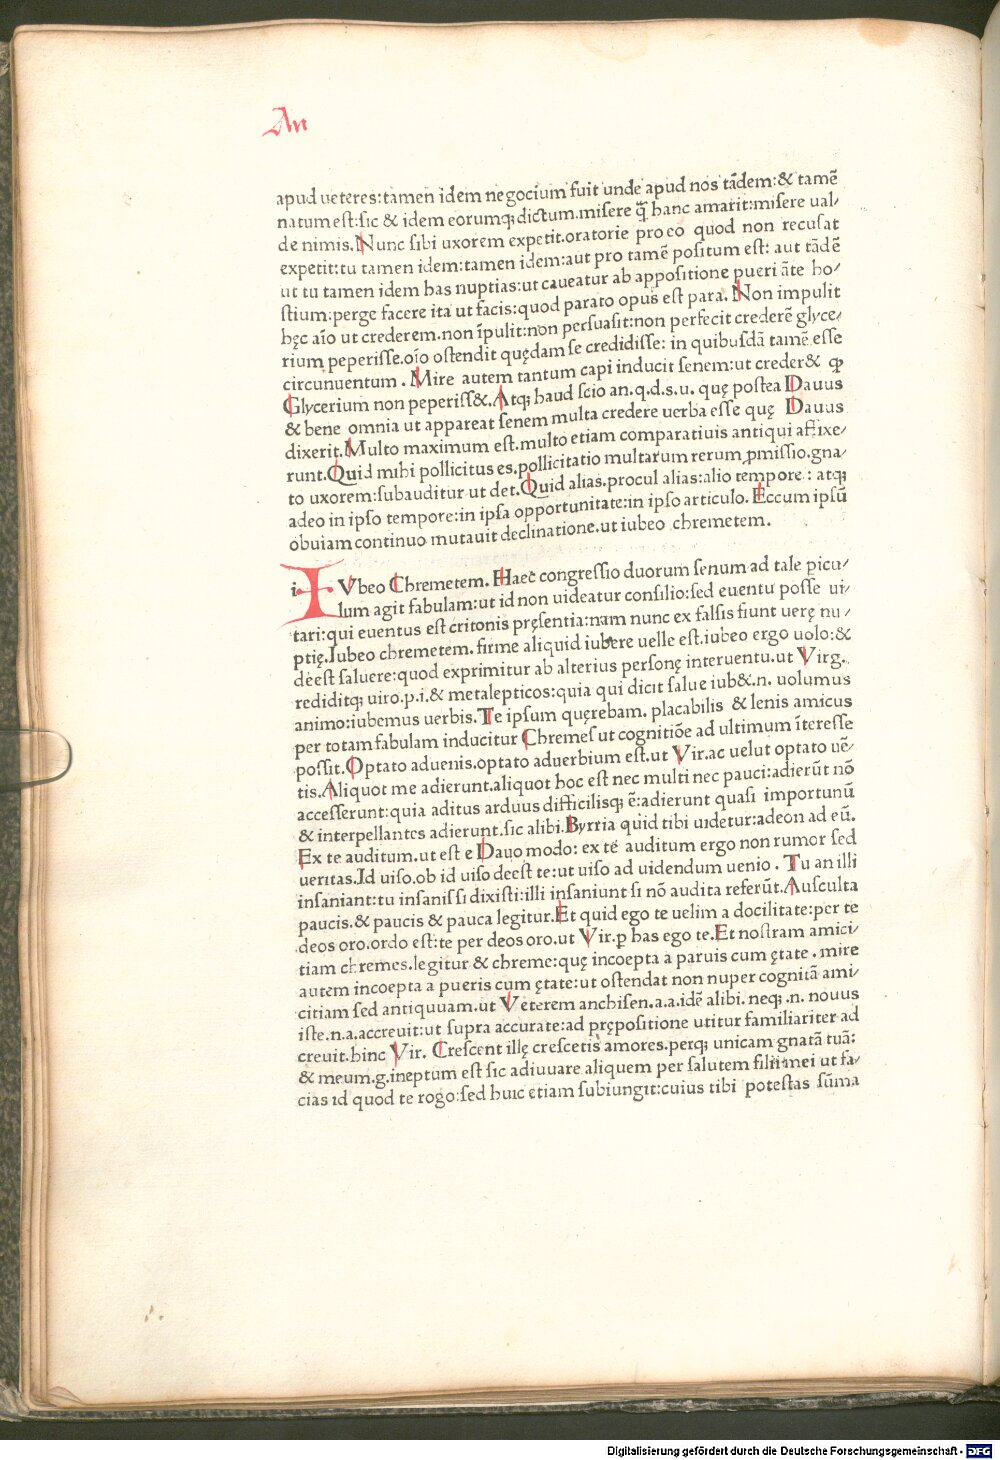 An
apud ueteres:tamen idem negocium fuit unde apud nos tãdem:& tamẽ
natum est:sic & idem eorumq; dictum.misere q̃ hanc amarit:misere ual/
de nimis.Nunc sibi uxorem expetit.oratorie pro eo quod non recusat
expetit:tu tamen idem:tamen idem:aut pro tamẽ positum est: aut tãdẽ
ut tu tamen idem has nuptias:ut caueatur ab appositione pueri ãte ho/
stium:perge facere ita ut facis:quod parato opus est para. Non impulit
hęc aĩo ut crederem.non ĩpulit:non persuasit:non perfecit crederẽ glyce/
rium peperisse.oĩo ostendit quędam se credidisse: in quibusdã tamẽ esse
circunuentum . Mire autem tantum capi inducit senem:ut creder& ꝙ
Glycerium non peperiss&.Atq; haud scio an.q.d.s.u. quę postea Dauus
& bene omnia ut appareat senem multa credere uerba esse quę Dauus
dixerit.Multo maximum est.multo etiam comparatiuis antiqui affixe/
runt.Quid mihi pollicitus es.pollicitatio multarum rerum ꝓmissio.gna/
to uxorem:subauditur ut det.Quid alias.procul alias:alio tempore : atq;
adeo in ipso tempore:in ipsa opportunitate:in ipso articulo. Eccum ipsũ
obuiam continuo mutauit declinatione.ut iubeo chremetem.
i IVbeo Chremetem. Haec congressio duorum senum ad tale picu/
lum agit fabulam:ut id non uideatur consilio:sed euentu posse ui/
tari:qui euentus est critonis pręsentia:nam nunc ex falsis fiunt uerę nu/
ptię.Iubeo chremetem. firme aliquid iubere uelle est.iubeo ergo uolo:&
deest saluere:quod exprimitur ab alterius personę interuentu.ut Virg.
rediditq; uiro.p.i.& metalepticos:quia qui dicit salue iub&.n. uolumus
animo:iubemus uerbis.Te ipsum quęrebam. placabilis & lenis amicus
per totam fabulam inducitur Chremes ut cognitiõe ad ultimum ĩteresse
possit.Optato aduenis.optato aduerbium est.ut Vir.ac uelut optato uẽ/
tis.Aliquot me adierunt.aliquot hoc est nec multi nec pauci:adierũt nõ
accesserunt:quia aditus arduus difficilisq; ẽ:adierunt quasi importunũ
& interpellantes adierunt.sic alibi.Byrria quid tibi uidetur:adeon ad eũ.
Ex te auditum.ut est e Dauo modo: ex te auditum ergo non rumor sed
ueritas.Id uiso.ob id uiso deest te:ut uiso ad uidendum uenio . Tu an illi
insaniant:tu insanis si dixisti:illi insaniunt si nõ audita referũt.Ausculta
paucis.& paucis & pauca legitur.Et quid ego te uelim a docilitate:per te
deos oro.ordo est:te per deos oro.ut Vir.ꝑ has ego te.Et nostram amici/
tiam chremes.legitur & chreme:quę incoepta a paruis cum ętate . mire
autem incoepta a pueris cum ętate:ut ostendat non nuper cognitã ami/
citiam sed antiquuam.ut Veterem anchisen.a.a.idẽ alibi. neq; .n. nouus
iste.n.a.accreuit:ut supra accurate:ad prępositione utitur familiariter ad
creuit.hinc Vir. Crescent illę crescetis amores.perq; unicam gnatã tuã:
& meum.g.ineptum est sic adiuuare aliquem per salutem filii mei ut fa/
cias id quod te rogo:sed huic etiam subiungit:cuius tibi potestas sũma
Digitalisierung gefördert durch die Deutsche Forschungsgemeinschaft - DFG